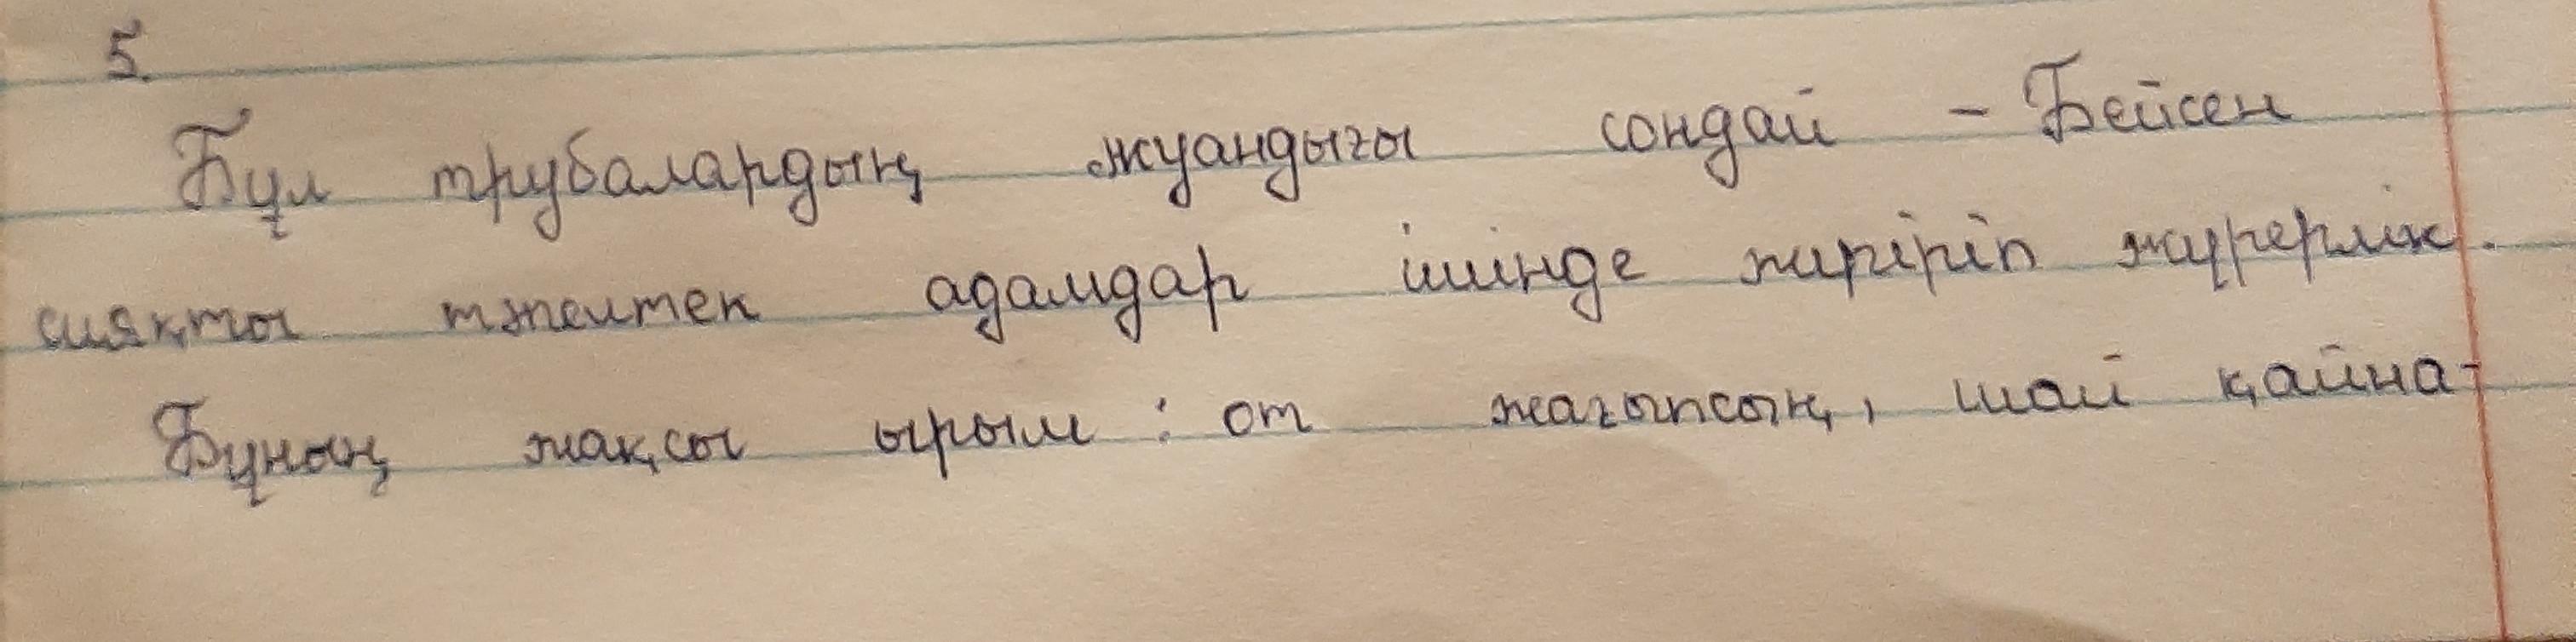 5.
Бұл трубалардың жуандығы сондай - Бейсен
сияқты тжелтек адамдар ішінде жүріріп жүрерлік.
Бұның жақсы ырым : от жағыпсың, шай қайна-